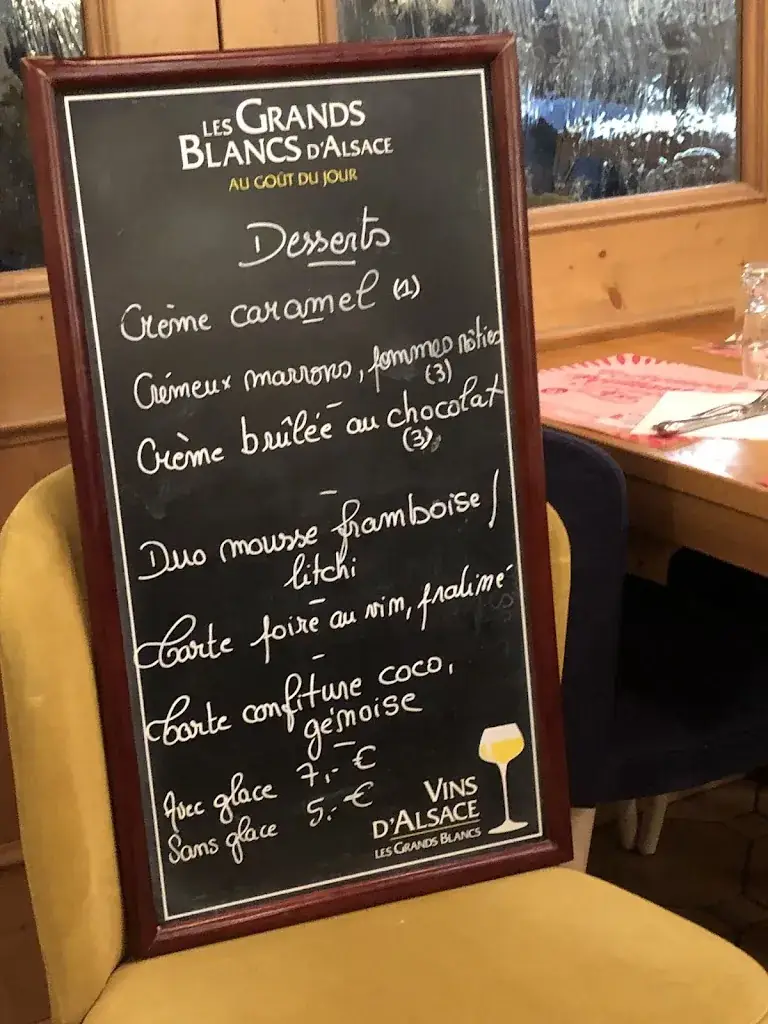 LES GRANDS
BLANCS D'ALSACE
AU GOÛT DU JOUR
Desserts
Crème caramel (1)
Crémeux marrons, pommes rôties
(3)
Crème brûlée au chocolat
(3)
Duo mousse framboise /
litchi
Tarte poire au vin, praliné
Tarte confiture coco,
génoise
Avec glace 7,- €
Sans glace 5,- €
VINS
D'ALSACE
LES GRANDS BLANCS